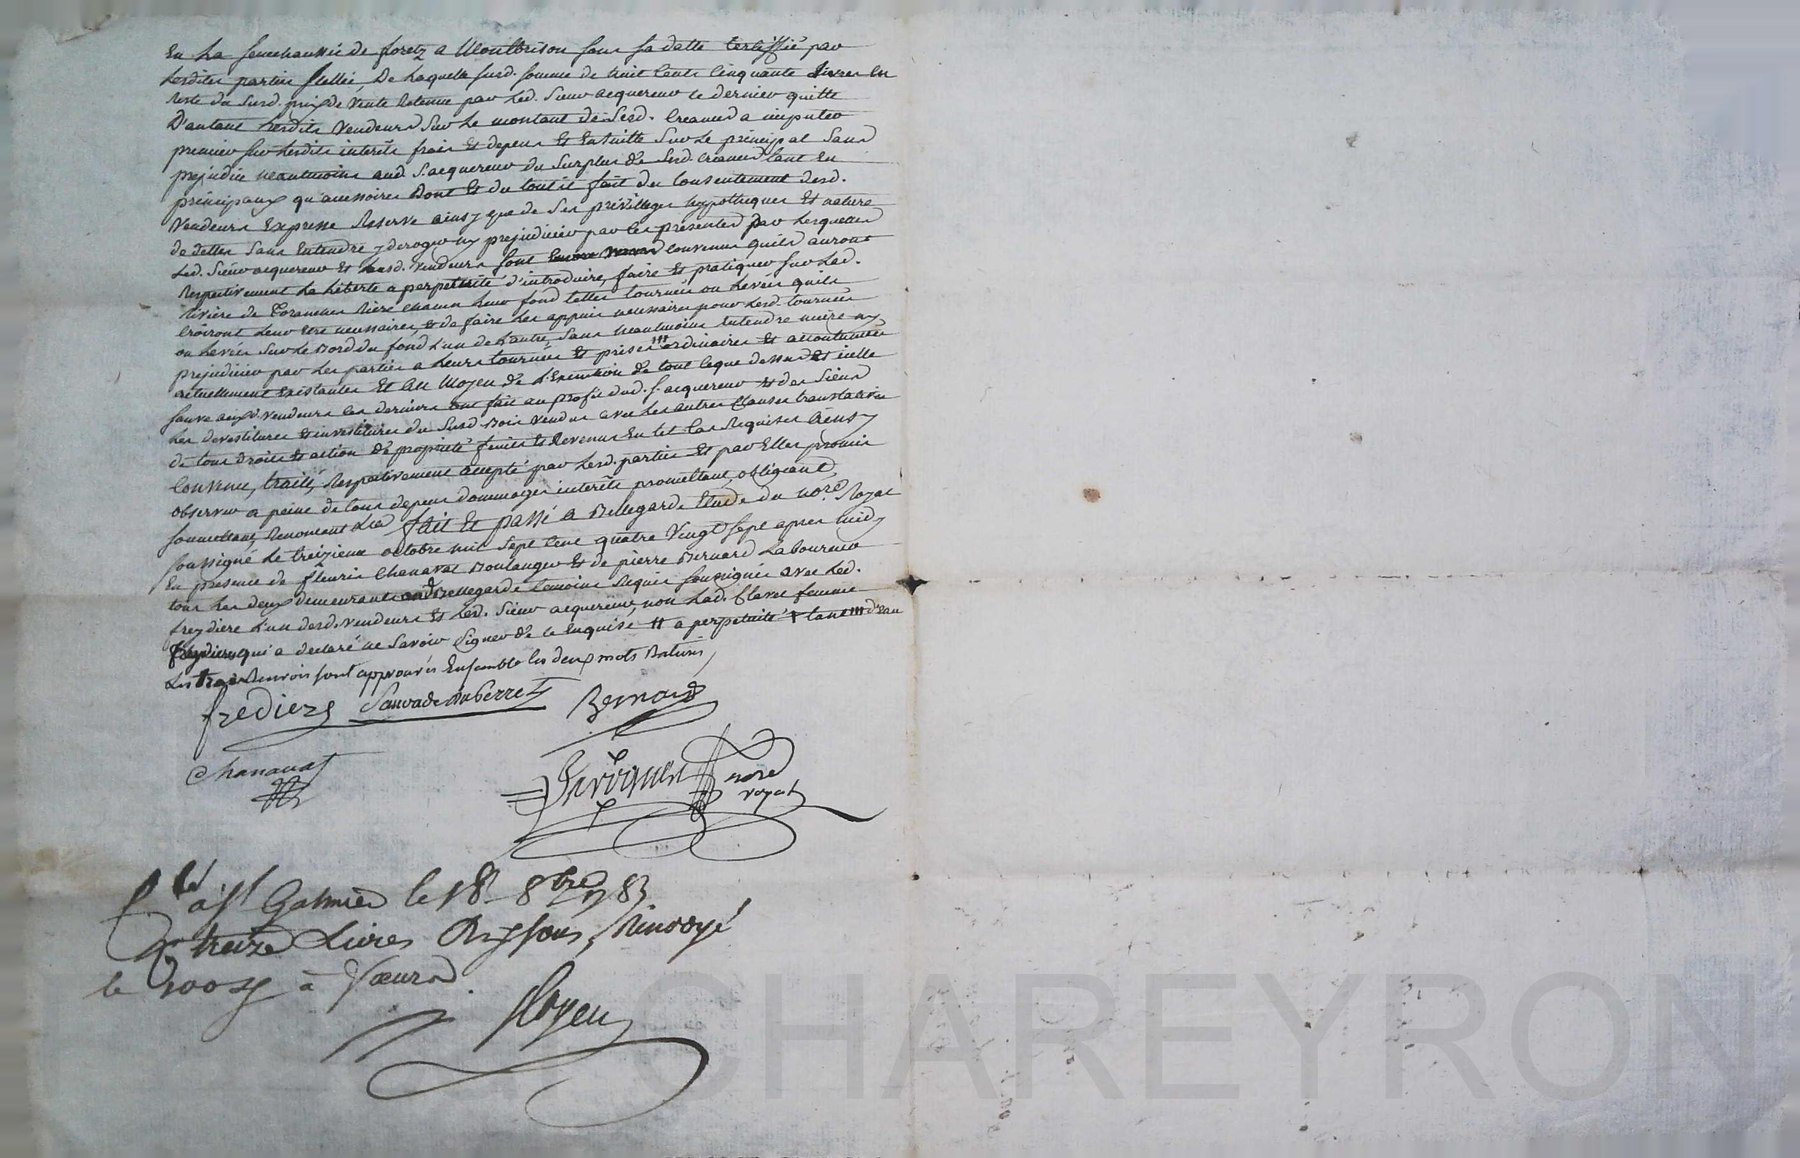 En la senechaussée de foretz a Montbrison sous sa datte certiffié par
lesdites parties de laquelle susd. somme de huit cents cinquante livres en
reste du susd. prix de vente retenue par led. Sieur acquereur ce dernier quitte
D'autant lesdits vendeurs sur le montant de sesd. creances a imputer
premier sur lesdits interêts frais et depens et ensuitte sur le principal Sans
prejudice neantmoins aud S. acquereur du surplus de sesd. creances tant en
principaux qu'accessoires Dont et du tout il fait du consentement desd.
Vendeurs Expresse Reserve ainsy que de ses privilleges hypotheques et nature
de dettes sans Entendre y deroger ny prejudicier par les presentes par lesquelles
Led. Sieur acquereur et lesd. vendeurs sont convenus quils auront
Respectivement la liberté a perpetuité d'introduire, faire et pratiquer sur lad.
riviere de Coranches riere chacun leur fond telles tournées ou levées quils
croiront leur etre necessaires, et de faire les appuis necessaires pour lesd. tournées
ou levées sur le Bord du fond l'un de l'autre, Sans neantmoins entendre nuire ny
prejudicier par les parties a leurs tournées et prises ordinaires et accoutumées
actuellement existantes Et au Moyen de l'Execution de tout ceque dessus et icelle
sauve auxd. vendeurs ces derniers ont fait au profit dud. S. acquereur et des Siens
les devestitures et investitures du susd. Bois vendus avec les autres clauses translatives
de tous droits et action de propriété fruits et Revenus En tel cas Requises Ainsy
Convenu, traité, Respectivement accepté par lesd. parties et par Elles promis
observer a peine de tous depens dommages interêts promettant, obligeant,
soumettant, Renoncant fait et passé a Bellegarde Etude du no.re Royal
soussigné le treizieme octobre mil sept cent quatre Vingt sept apres midy
En presence de fleuris Chanavat Boulanger et de pierre Bernard Laboureur
tous les deux demeurants aud Bellegarde temoins Requis soussignés avec led.
freydiere l'un desd. vendeurs et led. Sieur acquereur, non lad. Clavel femme
freydiere qui a declaré ne savoir Signer de ce Enquise # a perpetuité d'eau
Les Renvois sont approuvés Ensemble les deux mots Batus
frediere Sauvade Duperret Bernard
Chanavat
nore
royal
à St Galmier le 18 8bre
treize Livres Dix sous, Renvoyé
le